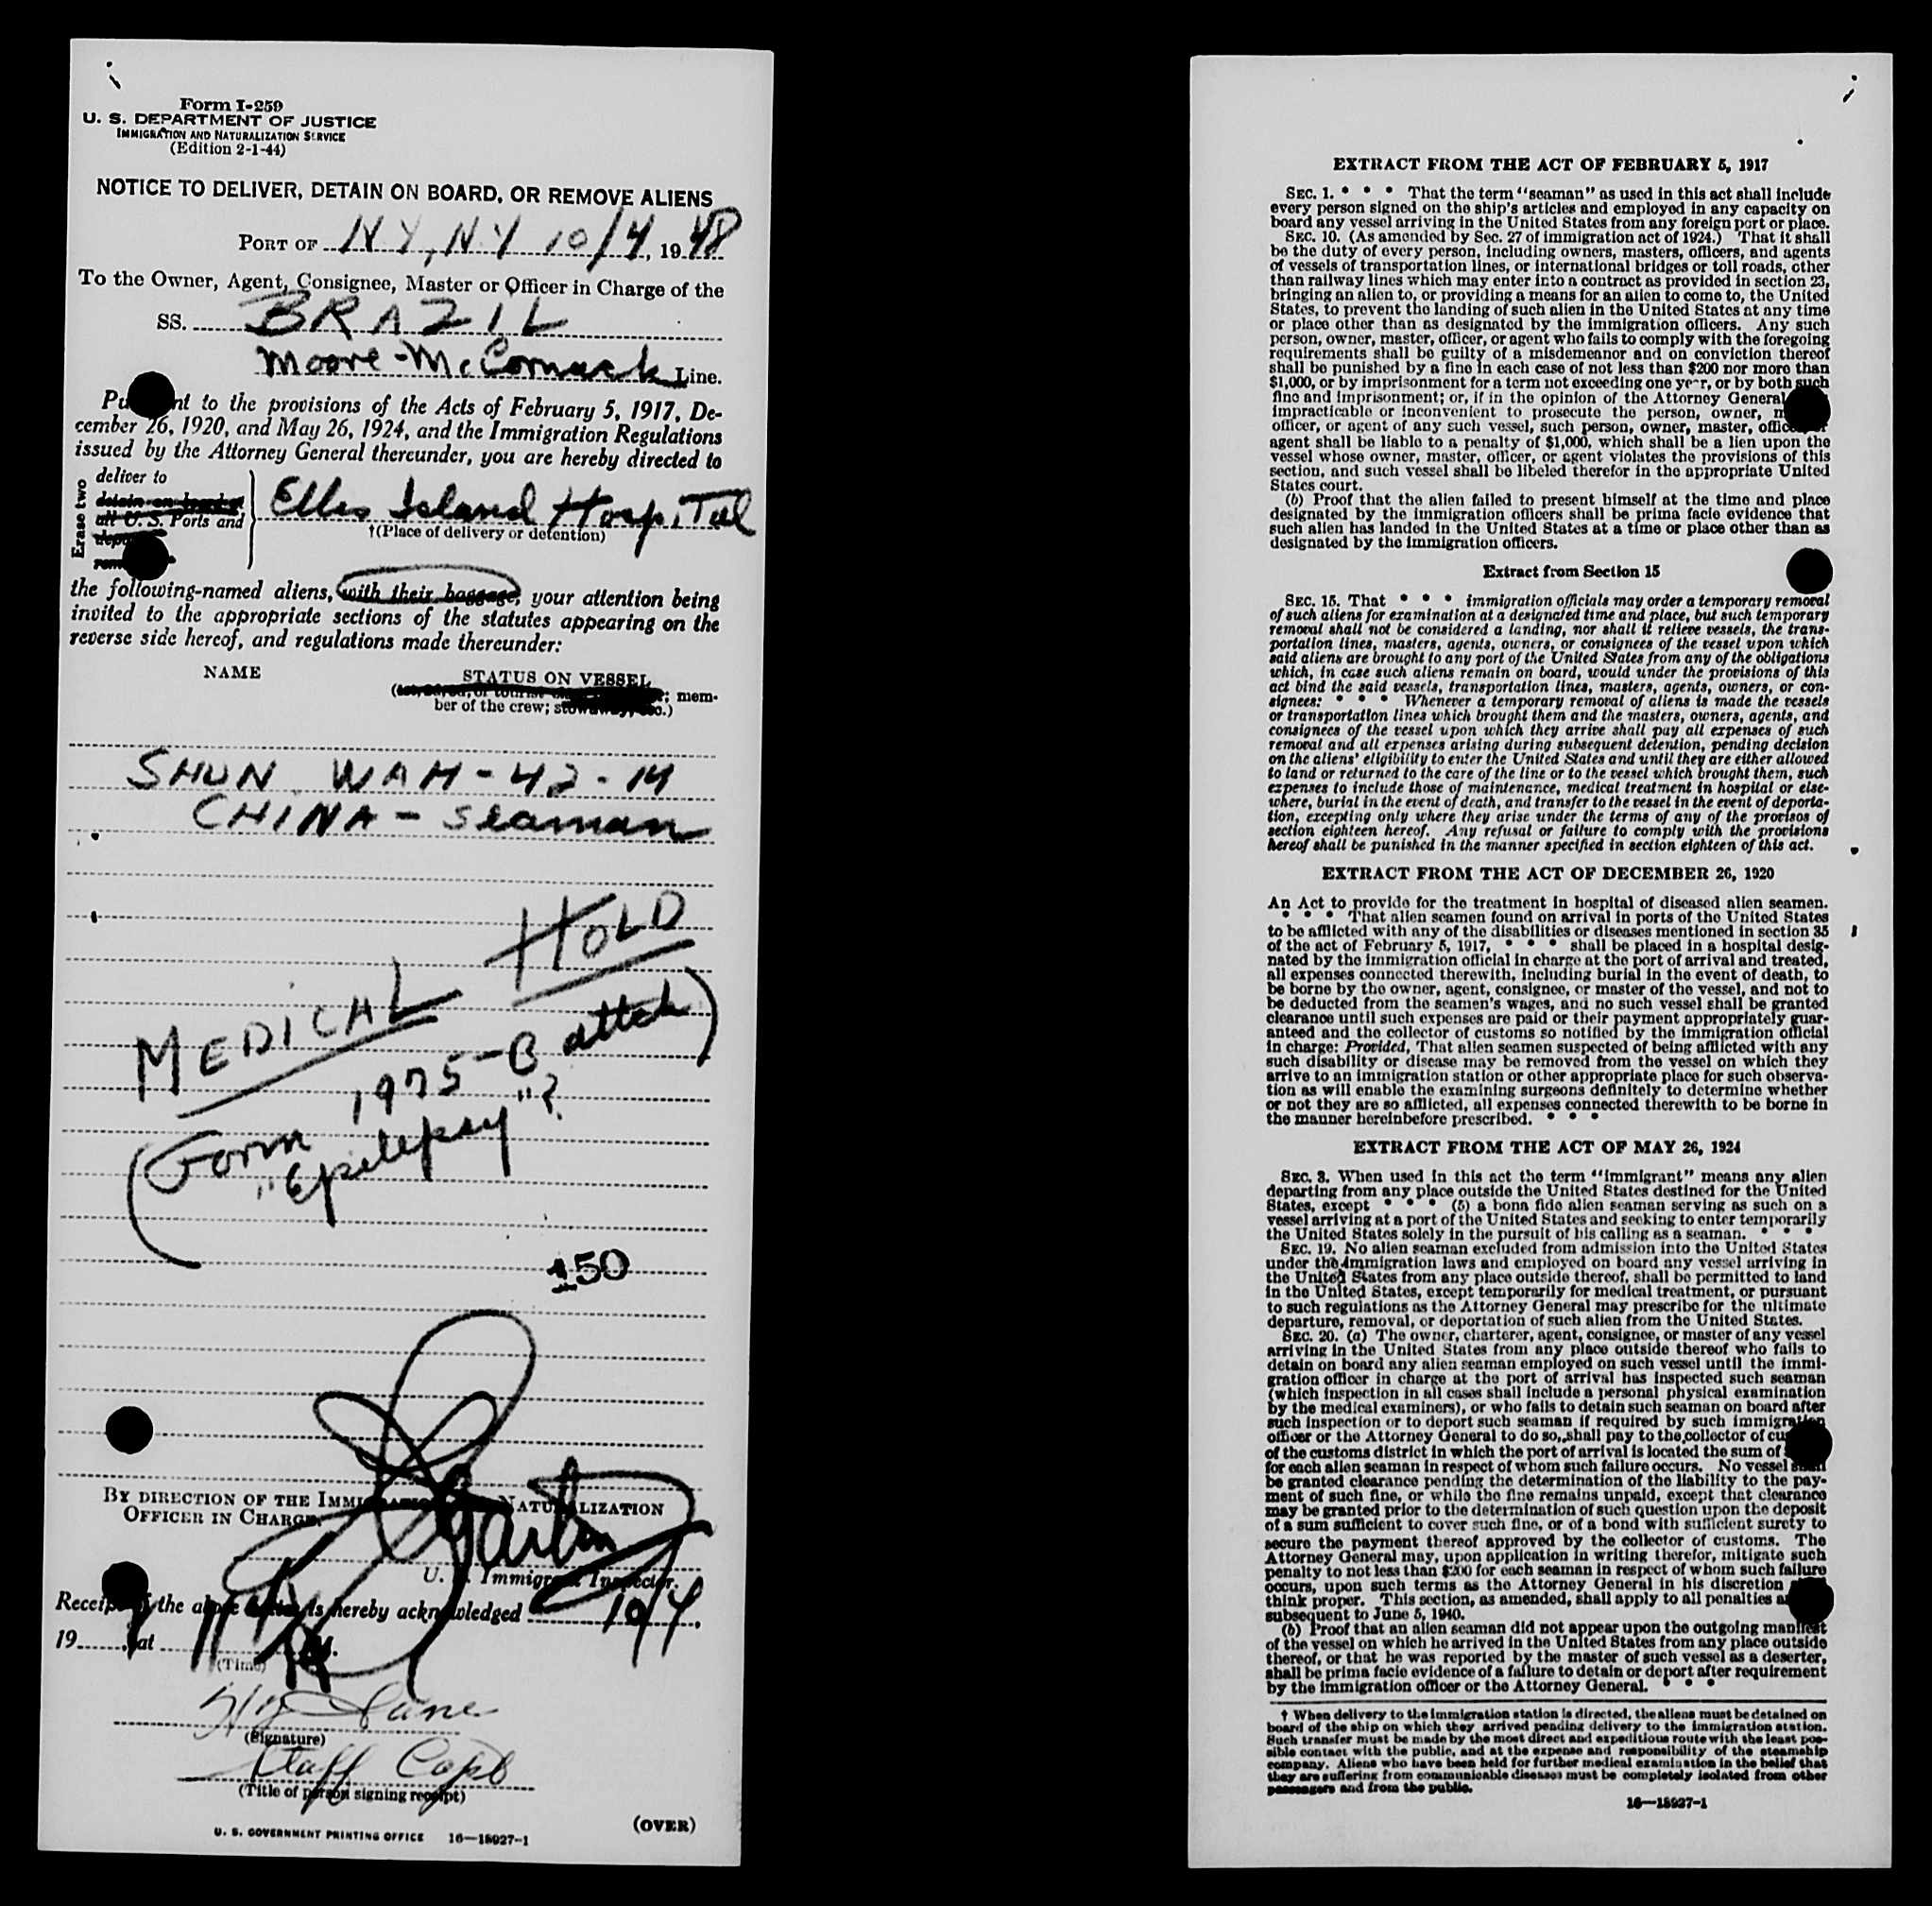 Form I-259
U. S. DEPARTMENT OF JUSTICE
IMMIGRATION AND NATURALIZATION SERVICE
(Edition 2-1-44)
NOTICE TO DELIVER, DETAIN ON BOARD, OR REMOVE ALIENS
PORT OF N Y, N Y 10/4, 1948
To the Owner, Agent, Consignee, Master or Officer in Charge of the
SS. BRAZIL
Moore-McCormack Line.
Pu nt to the provisions of the Acts of February 5, 1917, De-
cember 26, 1920, and May 26, 1924, and the Immigration Regulations
issued by the Attorney General thereunder, you are hereby directed to
Erase two
deliver to
detain on board at
all U. S. Ports and
Ellis Island Hospital
†(Place of delivery or detention)
the following-named aliens, with their baggage, your attention being
invited to the appropriate sections of the statutes appearing on the
reverse side hereof, and regulations made thereunder:
NAME
STATUS ON VESSEL
; mem-
ber of the crew;
SHUN WAH - 42 - M
CHINA - Seaman
MEDICAL HOLD
(Form 1975-B attch)
"Epilepsy"?
150
BY DIRECTION OF THE IMMIGRATION NATURALIZATION
OFFICER IN CHARGE.
U. S. Immigrant Inspector.
Receipt of the above is hereby acknowledged 10/4,
19 , at
(Time)
(Signature)
Staff Capt
(Title of person signing receipt)
(OVER)
U. S. GOVERNMENT PRINTING OFFICE 16—18927-1
EXTRACT FROM THE ACT OF FEBRUARY 5, 1917
SEC. 1. * * * That the term "seaman" as used in this act shall include
every person signed on the ship's articles and employed in any capacity on
board any vessel arriving in the United States from any foreign port or place.
SEC. 10. (As amended by Sec. 27 of immigration act of 1924.) That it shall
be the duty of every person, including owners, masters, officers, and agents
of vessels of transportation lines, or international bridges or toll roads, other
than railway lines which may enter into a contract as provided in section 23,
bringing an alien to, or providing a means for an alien to come to, the United
States, to prevent the landing of such alien in the United States at any time
or place other than as designated by the immigration officers. Any such
person, owner, master, officer, or agent who fails to comply with the foregoing
requirements shall be guilty of a misdemeanor and on conviction thereof
shall be punished by a fine in each case of not less than $200 nor more than
$1,000, or by imprisonment for a term not exceeding one year, or by both such
fine and imprisonment; or, if in the opinion of the Attorney General
impracticable or inconvenient to prosecute the person, owner, m
officer, or agent of any such vessel, such person, owner, master, officer, or
agent shall be liable to a penalty of $1,000, which shall be a lien upon the
vessel whose owner, master, officer, or agent violates the provisions of this
section, and such vessel shall be libeled therefor in the appropriate United
States court.
(b) Proof that the alien failed to present himself at the time and place
designated by the immigration officers shall be prima facie evidence that
such alien has landed in the United States at a time or place other than as
designated by the immigration officers.
Extract from Section 15
SEC. 15. That * * * immigration officials may order a temporary removal
of such aliens for examination at a designated time and place, but such temporary
removal shall not be considered a landing, nor shall it relieve vessels, the trans-
portation lines, masters, agents, owners, or consignees of the vessel upon which
said aliens are brought to any port of the United States from any of the obligations
which, in case such aliens remain on board, would under the provisions of this
act bind the said vessels, transportation lines, masters, agents, owners, or con-
signees: * * * Whenever a temporary removal of aliens is made the vessels
or transportation lines which brought them and the masters, owners, agents, and
consignees of the vessel upon which they arrive shall pay all expenses of such
removal and all expenses arising during subsequent detention, pending decision
on the aliens' eligibility to enter the United States and until they are either allowed
to land or returned to the care of the line or to the vessel which brought them, such
expenses to include those of maintenance, medical treatment in hospital or else-
where, burial in the event of death, and transfer to the vessel in the event of deporta-
tion, excepting only where they arise under the terms of any of the provisos of
section eighteen hereof. Any refusal or failure to comply with the provisions
hereof shall be punished in the manner specified in section eighteen of this act.
EXTRACT FROM THE ACT OF DECEMBER 26, 1920
An Act to provide for the treatment in hospital of diseased alien seamen.
* * * That alien seamen found on arrival in ports of the United States
to be afflicted with any of the disabilities or diseases mentioned in section 35
of the act of February 5, 1917, * * * shall be placed in a hospital desig-
nated by the immigration official in charge at the port of arrival and treated,
all expenses connected therewith, including burial in the event of death, to
be borne by the owner, agent, consignee, or master of the vessel, and not to
be deducted from the seamen's wages, and no such vessel shall be granted
clearance until such expenses are paid or their payment appropriately guar-
anteed and the collector of customs so notified by the immigration official
in charge: Provided, That alien seamen suspected of being afflicted with any
such disability or disease may be removed from the vessel on which they
arrive to an immigration station or other appropriate place for such observa-
tion as will enable the examining surgeons definitely to determine whether
or not they are so afflicted, all expenses connected therewith to be borne in
the manner hereinbefore prescribed. * * *
EXTRACT FROM THE ACT OF MAY 26, 1924
SEC. 3. When used in this act the term "immigrant" means any alien
departing from any place outside the United States destined for the United
States, except * * * (5) a bona fide alien seaman serving as such on a
vessel arriving at a port of the United States and seeking to enter temporarily
the United States solely in the pursuit of his calling as a seaman. * * *
SEC. 19. No alien seaman excluded from admission into the United States
under the immigration laws and employed on board any vessel arriving in
the United States from any place outside thereof, shall be permitted to land
in the United States, except temporarily for medical treatment, or pursuant
to such regulations as the Attorney General may prescribe for the ultimate
departure, removal, or deportation of such alien from the United States.
SEC. 20. (a) The owner, charterer, agent, consignee, or master of any vessel
arriving in the United States from any place outside thereof who fails to
detain on board any alien seaman employed on such vessel until the immi-
gration officer in charge at the port of arrival has inspected such seaman
(which inspection in all cases shall include a personal physical examination
by the medical examiners), or who fails to detain such seaman on board after
such inspection or to deport such seaman if required by such immigration
officer or the Attorney General to do so, shall pay to the collector of cus
of the customs district in which the port of arrival is located the sum of
for each alien seaman in respect of whom such failure occurs. No vessel shall
be granted clearance pending the determination of the liability to the pay-
ment of such fine, or while the fine remains unpaid, except that clearance
may be granted prior to the determination of such question upon the deposit
of a sum sufficient to cover such fine, or of a bond with sufficient surety to
secure the payment thereof approved by the collector of customs. The
Attorney General may, upon application in writing therefor, mitigate such
penalty to not less than $200 for each seaman in respect of whom such failure
occurs, upon such terms as the Attorney General in his discretion
think proper. This section, as amended, shall apply to all penalties a
subsequent to June 5, 1940.
(b) Proof that an alien seaman did not appear upon the outgoing manifest
of the vessel on which he arrived in the United States from any place outside
thereof, or that he was reported by the master of such vessel as a deserter,
shall be prima facie evidence of a failure to detain or deport after requirement
by the immigration officer or the Attorney General. * * *
† When delivery to the immigration station is directed, the aliens must be detained on
board of the ship on which they arrived pending delivery to the immigration station.
Such transfer must be made by the most direct and expeditious route with the least pos-
sible contact with the public, and at the expense and responsibility of the steamship
company. Aliens who have been held for further medical examination in the belief that
they are suffering from communicable diseases must be completely isolated from other
passengers and from the public.
16—18927-1